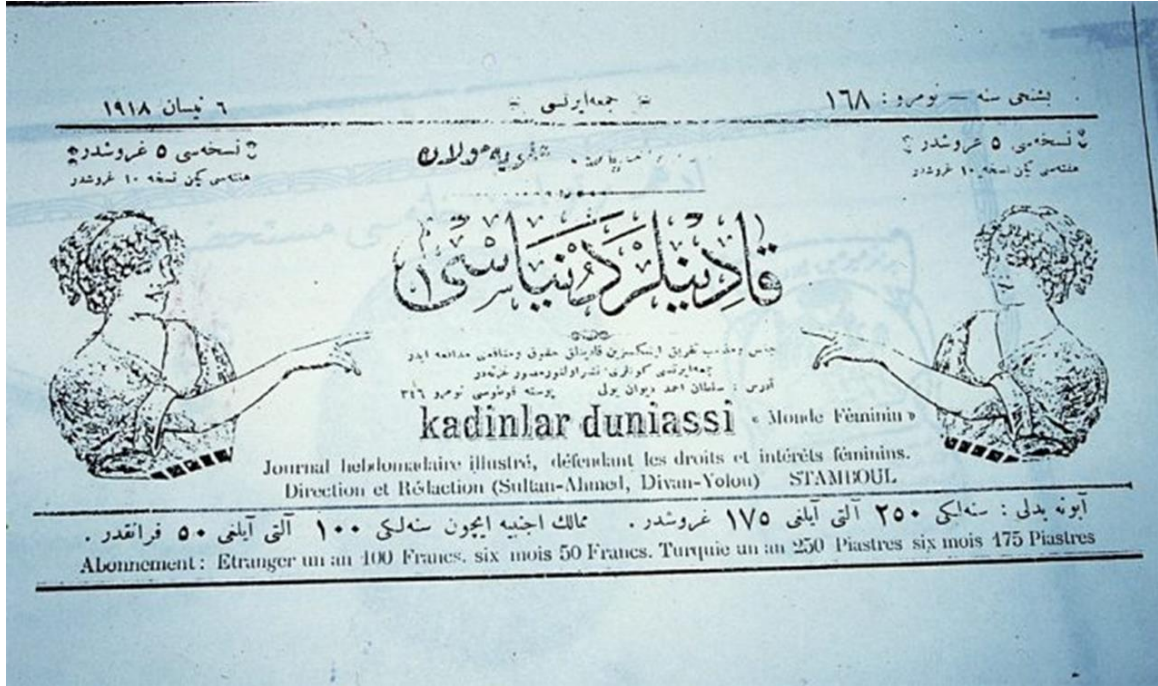 بشنجی سنه — نومرو : ١٦٨ جمعه‌ایرتسی ٦ نیسان ١٩١٨
نسخه‌سی ٥ غروشدر نسخه‌سی ٥ غروشدر
هفته‌سی كچن نسخه ١٠ غروشدر هفته‌سی كچن نسخه ١٠ غروشدر
قادینلر دنیاسی
جنس و مذهب تفریق ایتمكسزین قادینلق حقوق ومنافعی مدافعه ایدر
جمعه‌ایرتسی كونلری نشر اولنور مصور غزته‌در
آدرس : سلطان احمد دیوان یولی پوسته قوطوسی نومرو ٣٤٦
kadinlar duniassi « Monde Féminin »
Journal hebdomadaire illustré, défendant les droits et intérêts féminins.
Direction et Rédaction (Sultan-Ahmed, Divan-Yolou) STAMBOUL
آبونه بدلی : سنه‌لكی ٢٥٠ آلتی آیلغی ١٧٥ غروشدر . ممالك اجنبیه ایچون سنه‌لكی ١٠٠ آلتی آیلغی ٥٠ فرانقدر .
Abonnement : Etranger un an 100 Francs. six mois 50 Francs. Turquie un an 250 Piastres six mois 175 Piastres